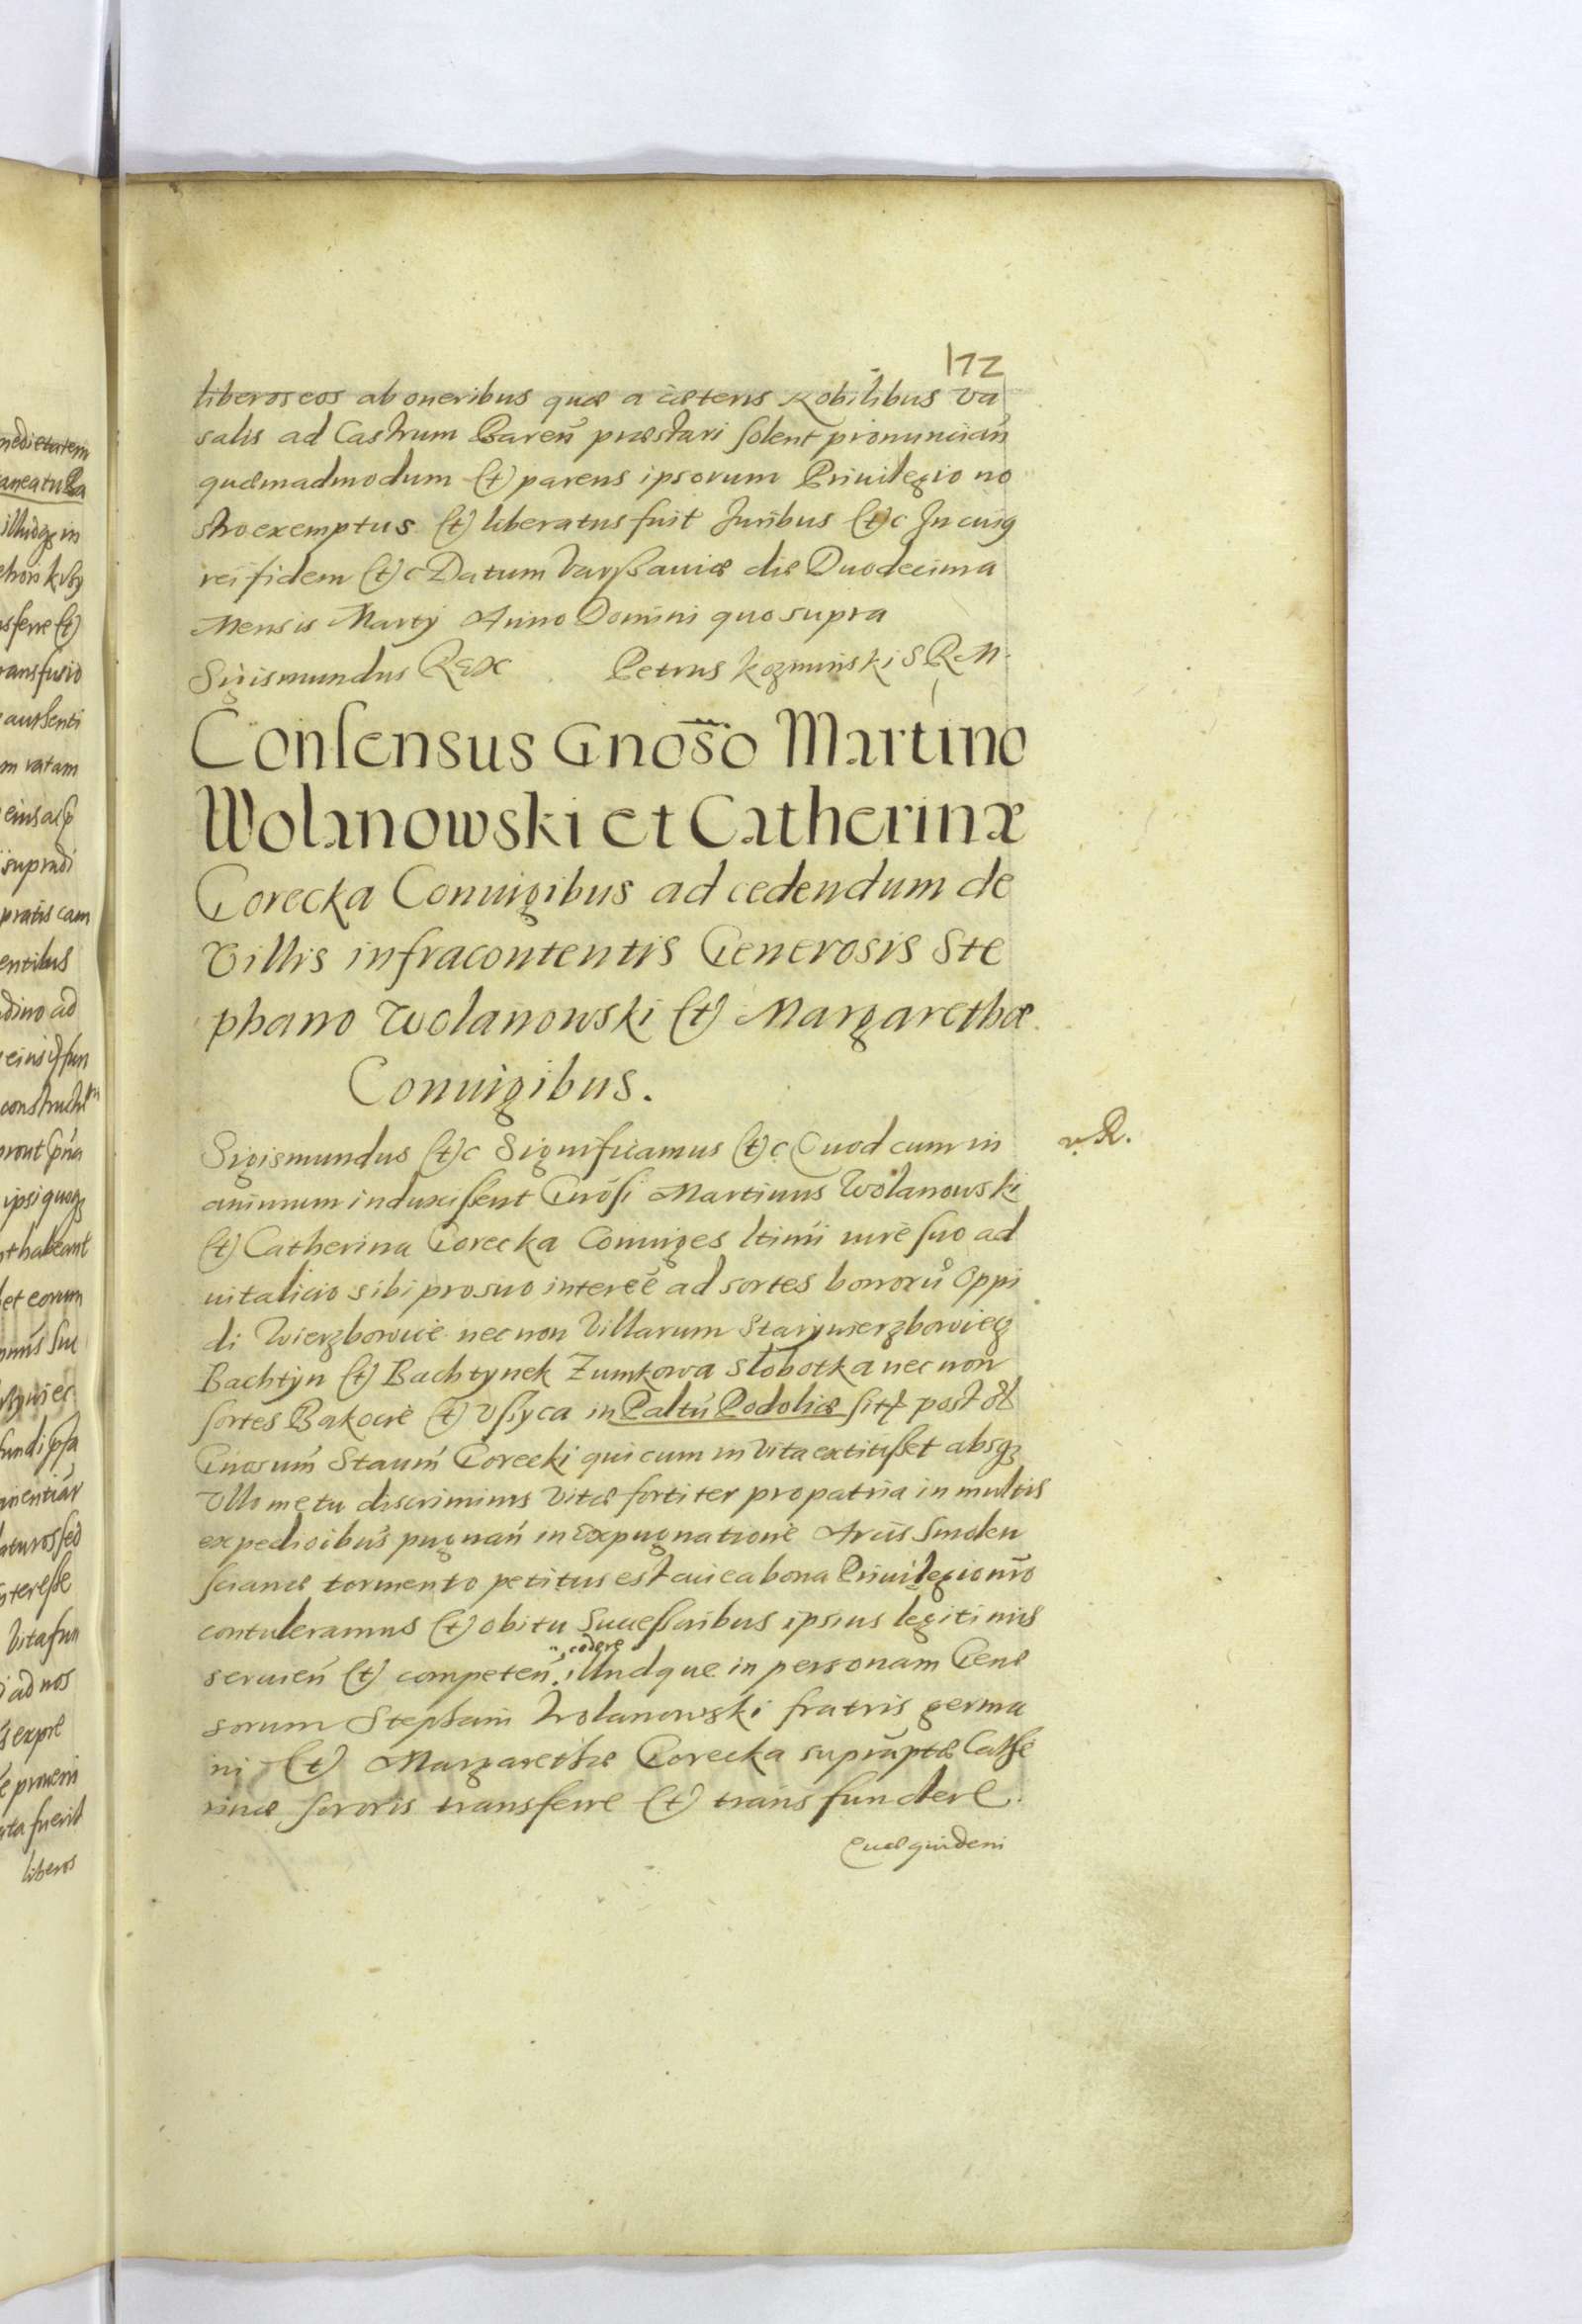 172
liberos eos ab oneribus quæ a cæteris Nobilibus Va
salis ad Castrum Bareñ præstari solent pronuncian̄
quæmadmodum (et) parens ipsorum Priuilegio no
stro exemptus (et) liberatus fuit Juribus (et)c In cuiq
rei fidem (et)c Datum Varssauiæ die Duodecima
Mensis Martij Anno Domini quo supra
Sigismundus REX Petrus Kozminski S R M
Consensus Gnos̄o Martino
Wolanowski et Catherinæ
Gorecka Coniugibus ad cedendum de
Villis infracontentis Generosis Ste
phano Wolanowski (et) Margarethæ
Coniugibus.
Sigismundus (et)c Significamus (et)c Quod cum in
v. R.
animum induxissent Gnōsi Martinus Wolanowski
(et) Catherina Gorecka Coniuges ltimi iure suo ad
uitalicio sibi pro suo intereē ad sortes bonorū Oppi
di Wierzbowiec nec non Villarum Starywierzbowiecz
Bachtyn (et) Bachtynek Zumkowa Slobotka nec non
sortes Bakocie (et) Vssyca in Paltū Podoliæ sit post ob
Gnosum̄ Staum̄ Gorecki qui cum in Vita extitisset absqz
Vllo metu discriminis Vitæ fortiter pro patria in multis
expedicibus pugnan̄ in expugnatione Arcis Smolen
scianæ tormento petitus est cui ea bona Priuilegio nr̄o
contuleramus (et) obitu Successoribus ipsius legitimis
cedere
seruien̄ (et) competen̄. illudque in personam Gene
sorum Stephani Wolanowski fratris germa
ni (et) Margarethæ Gorecka supraptæ Cathe
rinæ sororis transferre (et) transfundere.
Quæquidem